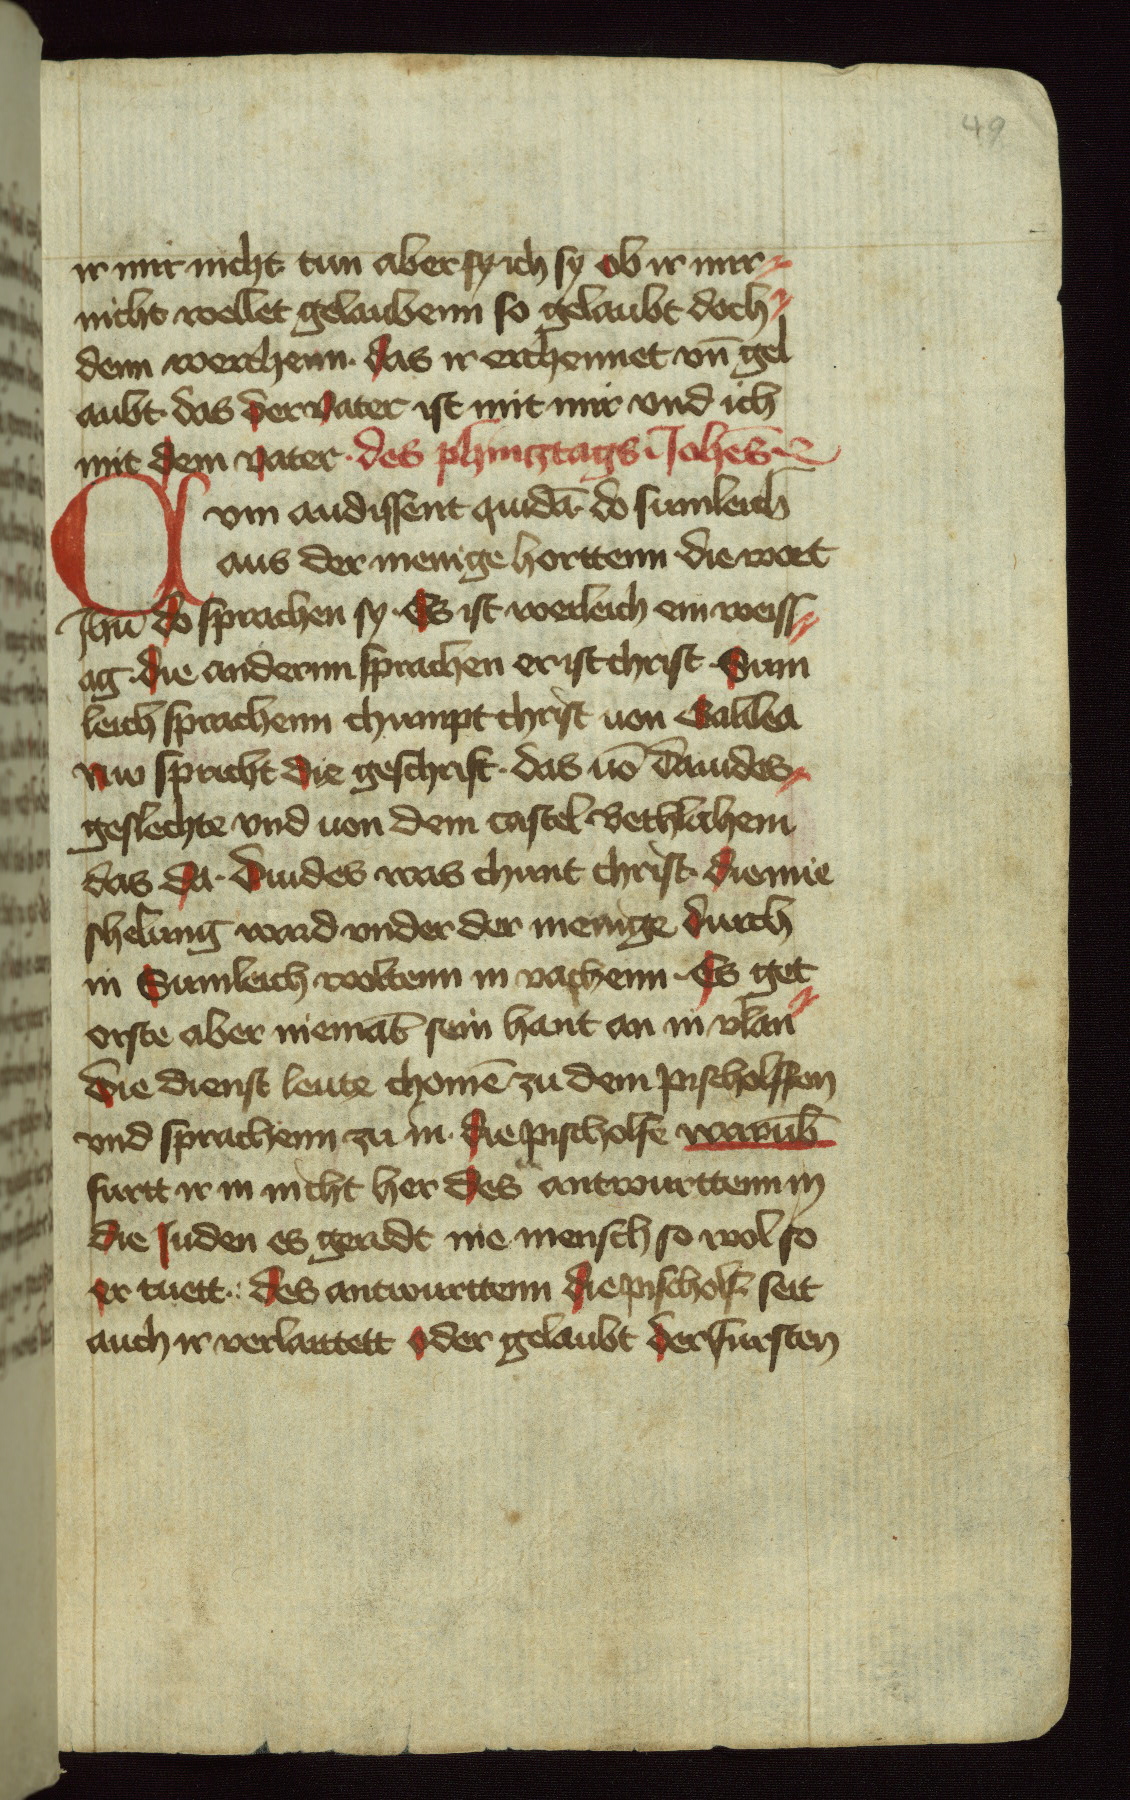 49
ir mir nicht tun aber sy ich sy ob ir mir
nicht wellet gelaubenn so gelaubt doch
denn werchenn. das ir erchennet vn̄ gel
aubt. das der vater ist mit mir vnd ich
mit dem vater. des phincztags Johēs
Cvm audissent quidā. do sumleich
aus der menige horttenn die wort
Jhū do sprachen sy. Es ist werleich ein weiss
ag. die andernn sprachen er ist christ. Sum
leich sprachenn chumpt christ uon Galilea
nw spricht die geschrift. das uō Dauides
geslechte vnd uon dem castel Bethlahem
das da. Dauides was chunt christ. die mie
shelung ward vnder der menige durch
in Sumleich woltenn in vachenn. Es get
orste aber niemāt sein hant an in vlan
Die dienst leute chomē zu dem pischolffen
vnd sprachenn zu in. die pischolfe warūb
furtt ir in nicht her des antwurttenn in
die Juden es geredt nie mensch so wol so
er tuett. des antwurttenn die pischolf. seit
auch ir verlaittett oder gelaubt der fursten